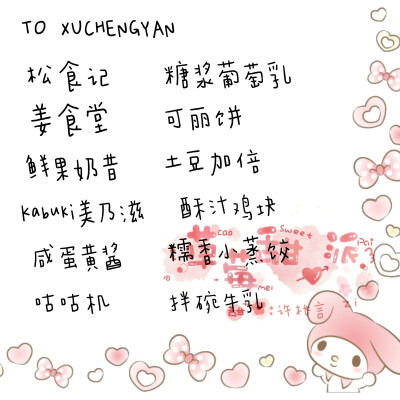 TO XUCHENGYAN
松食记 糖浆葡萄乳
姜食堂 可丽饼
鲜果奶昔 土豆加倍
kabuki美乃滋 酥汁鸡块
cao sweet
草莓甜派 pai
咸蛋黄酱 糯香小蒸饺
mei
咕咕机 拌碗牛乳
:许桃言 zi